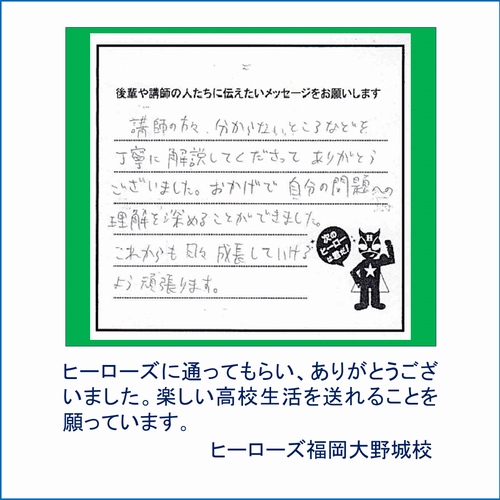 後輩や講師の人たちに伝えたいメッセージをお願いします
講師の方々、分からないところなどを
丁寧に解説してくださって ありがとう
ございました。おかげで 自分の問題への
理解を深めることができました。
これからも 日々 成長していける
よう 頑張ります。
次の
ヒーロー
は君だ!
ヒーローズに通ってもらい、ありがとうござ
いました。楽しい高校生活を送れることを
願っています。
ヒーローズ福岡大野城校